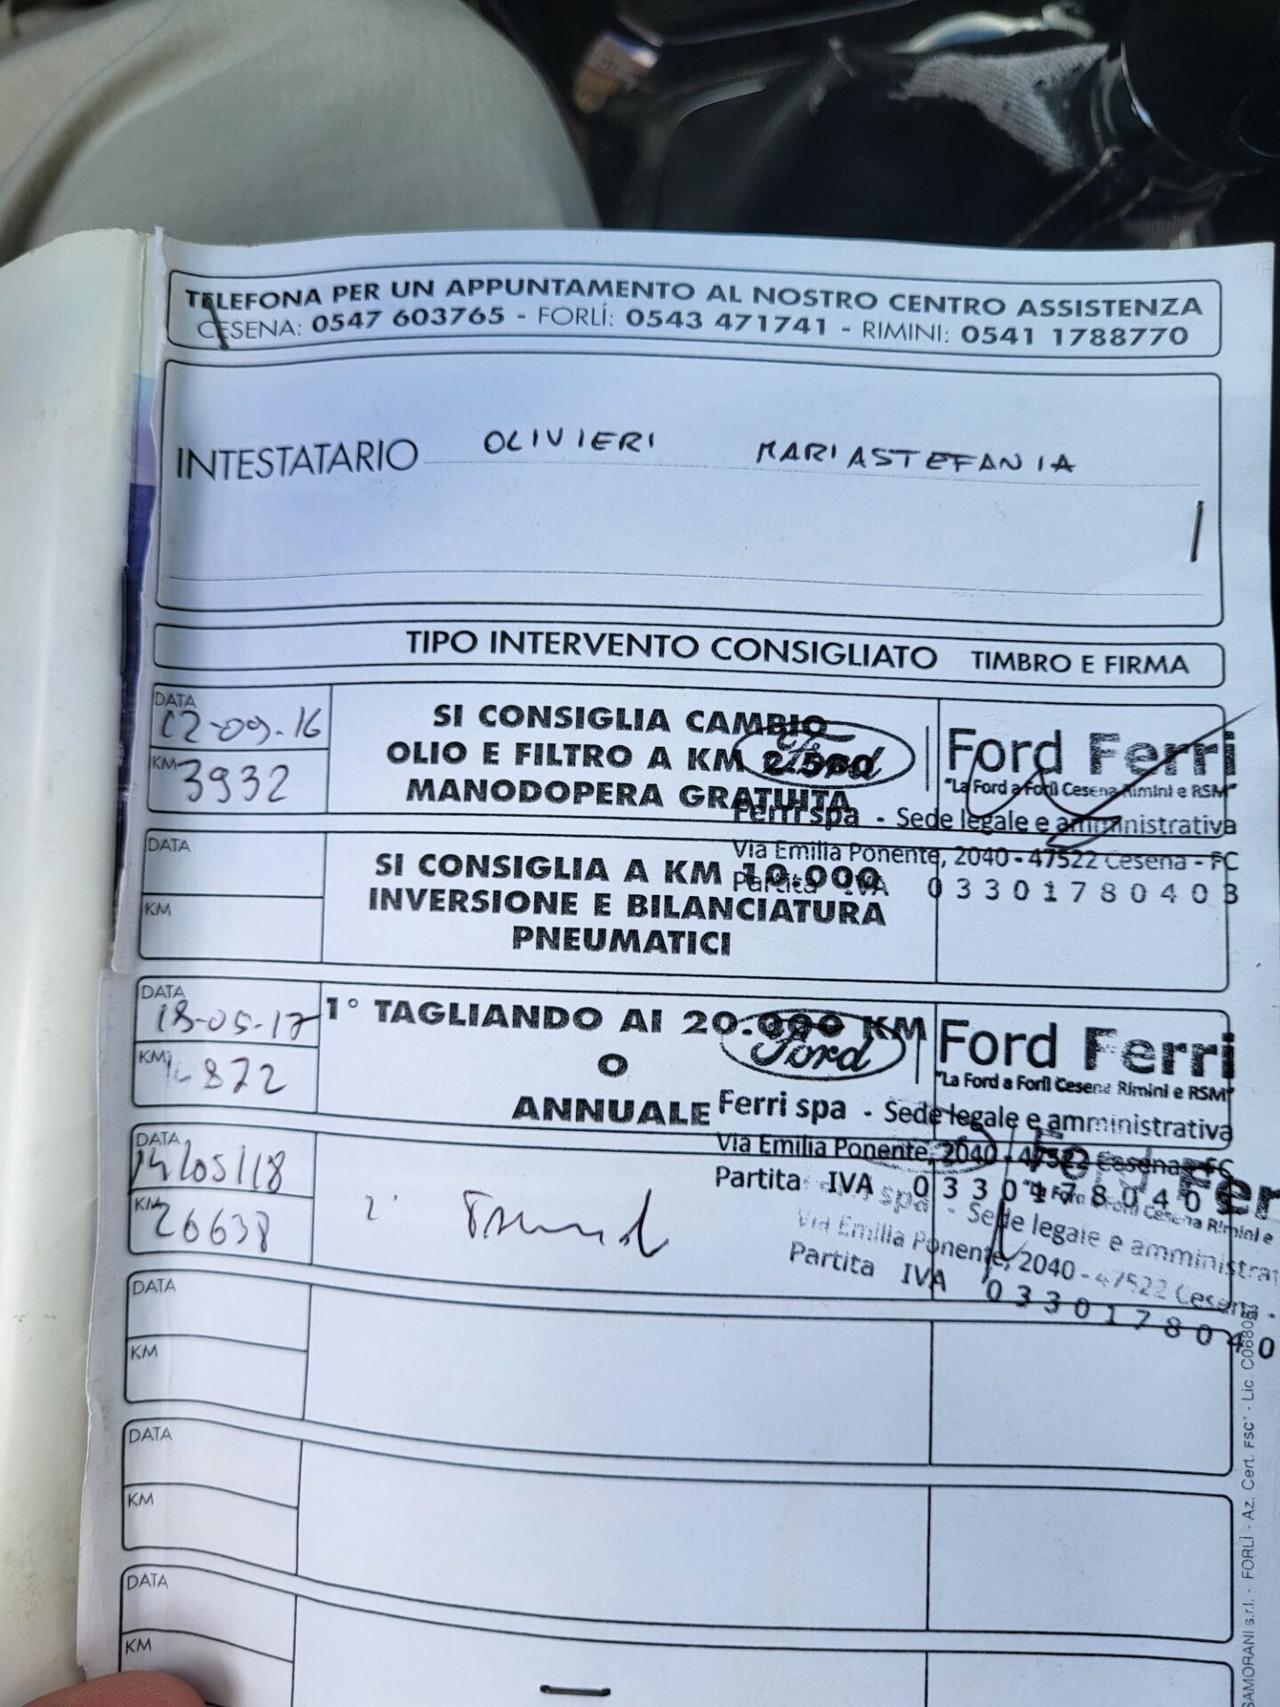 TELEFONA PER UN APPUNTAMENTO AL NOSTRO CENTRO ASSISTENZA
CESENA: 0547 603765 - FORLÌ: 0543 471741 - RIMINI: 0541 1788770
INTESTATARIO OLIVIERI MARIASTEFANIA
TIPO INTERVENTO CONSIGLIATO TIMBRO E FIRMA
DATA
12-09-16
KM
3932
SI CONSIGLIA CAMBIO
OLIO E FILTRO A KM 2.500
MANODOPERA GRATUITA
Ford
Ford Ferri
"La Ford a Forlì Cesena Rimini e RSM"
Ferri spa - Sede legale e amministrativa
Via Emilia Ponente, 2040 - 47522 Cesena - FC
Partita IVA 03301780403
DATA
KM
SI CONSIGLIA A KM 10.000
INVERSIONE E BILANCIATURA
PNEUMATICI
DATA
18-05-17
KM
872
1° TAGLIANDO AI 20.000 KM
O
ANNUALE
Ford
Ford Ferri
"La Ford a Forlì Cesena Rimini e RSM"
Ferri spa - Sede legale e amministrativa
Via Emilia Ponente, 2040 - 47522 Cesena - FC
Partita IVA 0330178040
DATA
14/05/18
KM
26638
2°
Ford Fer
"La Ford a Forlì Cesena Rimini e
spa - Sede legale e amministrat
Via Emilia Ponente, 2040 - 47522 Cesena -
Partita IVA 0330178040
DATA
KM
DATA
KM
DATA
KM
SAMORANI s.r.l. - FORLÌ - Az. Cert. FSC® - Lic. C0680